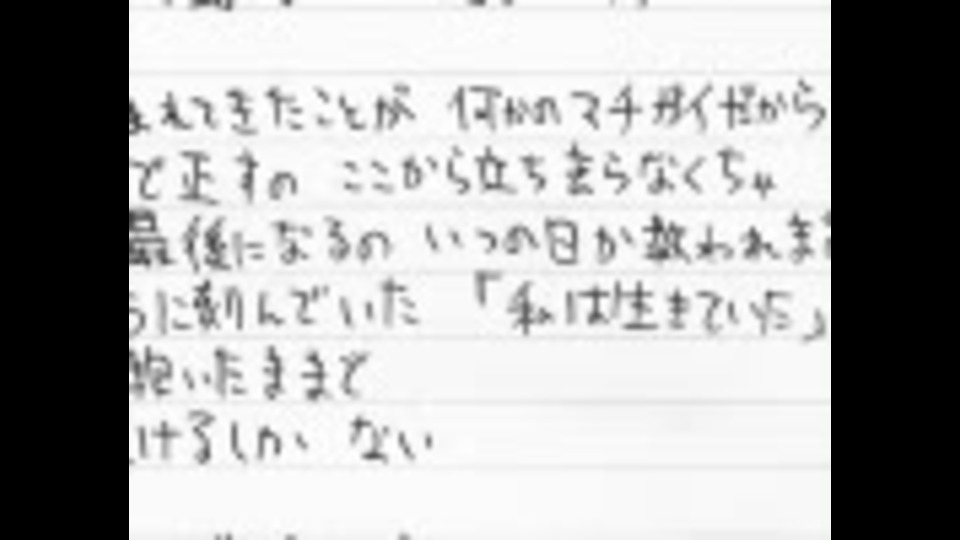 まれてきたことが 何かのマチガイだから
で正すの ここから立ち去らなくちゃ
最後になるの いつの日か救われま
うに刻んでいた 「私は生きていた」
抱いたままで
けるしか ない